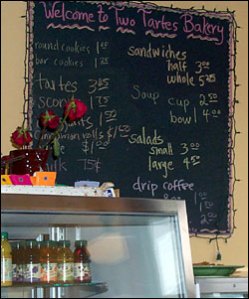 Welcome to Two Tartes Bakery
round cookies 1.00
bar cookies 1.
tartes 3.
scon
rolls $1
$1.00
75¢
sandwiches
half 3.00
whole 5.75
Soup cup 2.50
bowl 4.00
Salads
small 3.00
large 4.50
drip coffee
2.00